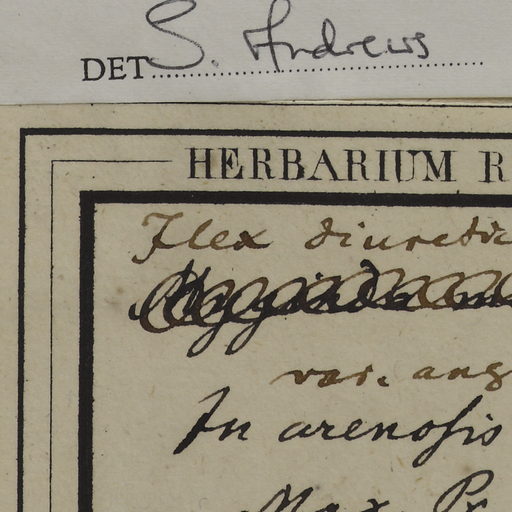 DET S. Andrews
HERBARIUM R
Ilex diuretic
var. ang
In arenosis
Max. Pr